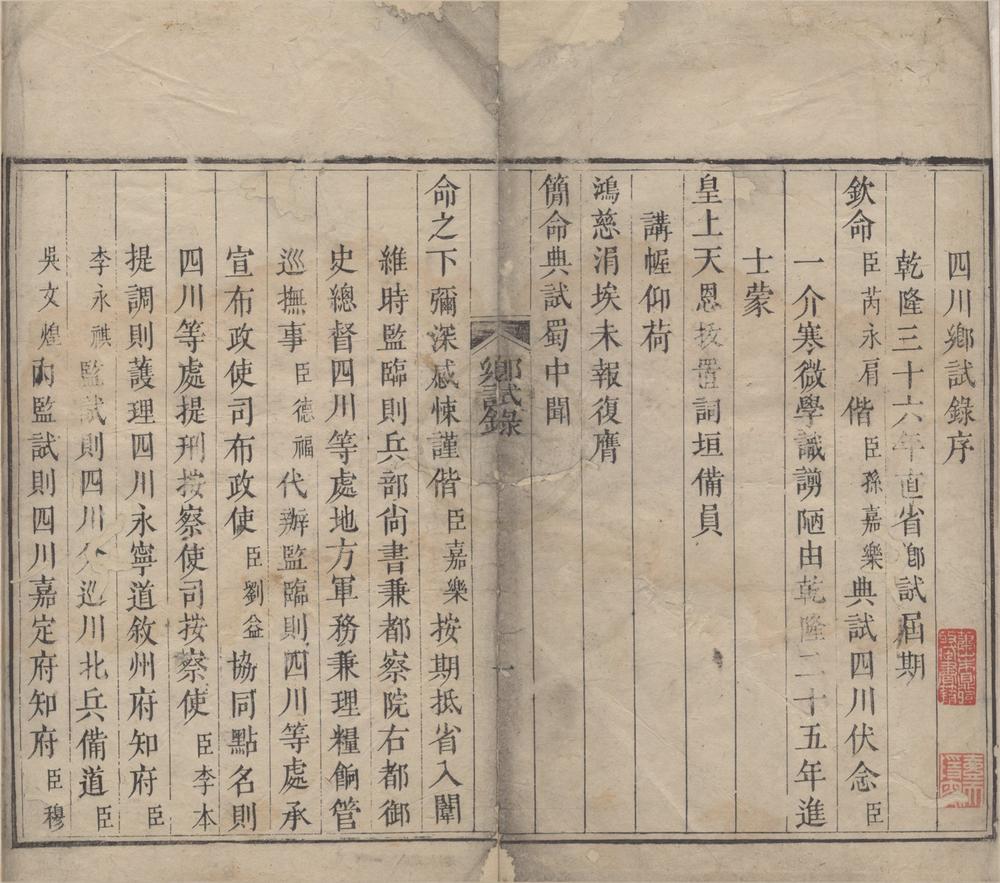 四川鄉試錄序
乾隆三十六年直省鄉試屆期
欽命臣芮永肩偕臣孫嘉樂典試四川伏念臣
一介寒微學識謭陋由乾隆二十五年進
士蒙
皇上天恩拔置詞垣備員
講幄仰荷
鴻慈涓埃未報復膺
簡命典試蜀中聞
鄉試錄
一
命之下彌深感悚謹偕臣嘉樂按期抵省入闈
維時監臨則兵部尙書兼都察院右都御
史總督四川等處地方軍務兼理糧餉管
巡撫事臣德福代辦監臨則四川等處承
宣布政使司布政使臣劉益協同點名則
四川等處提刑按察使司按察使臣李本
提調則護理四川永寧道敘州府知府臣
李永祺監試則四川分巡川北兵備道臣
吳文煌內監試則四川嘉定府知府臣穆